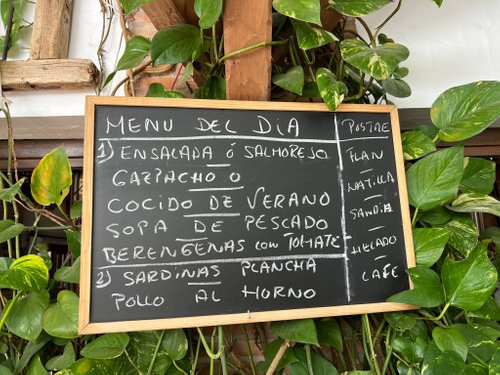 MENU DEL DIA
1) ENSALADA Ó SALMOREJO
GAZPACHO O
COCIDO DE VERANO
SOPA DE PESCADO
BERENGENAS con TOMATE
2) SARDINAS PLANCHA
POLLO AL HORNO
POSTRE
FLAN
NATILLA
SANDIA
HELADO
CAFE